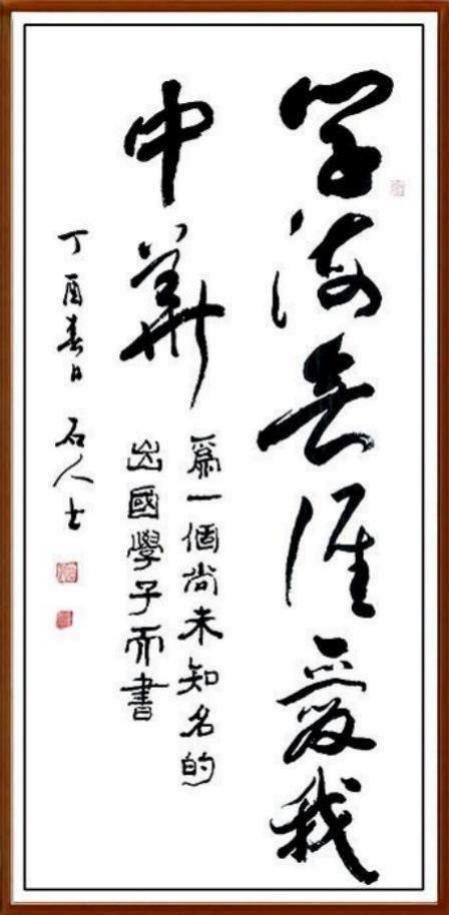 学海无涯爱我
中华
為一個尚未知名的
出國學子而書
丁酉春日 石人士